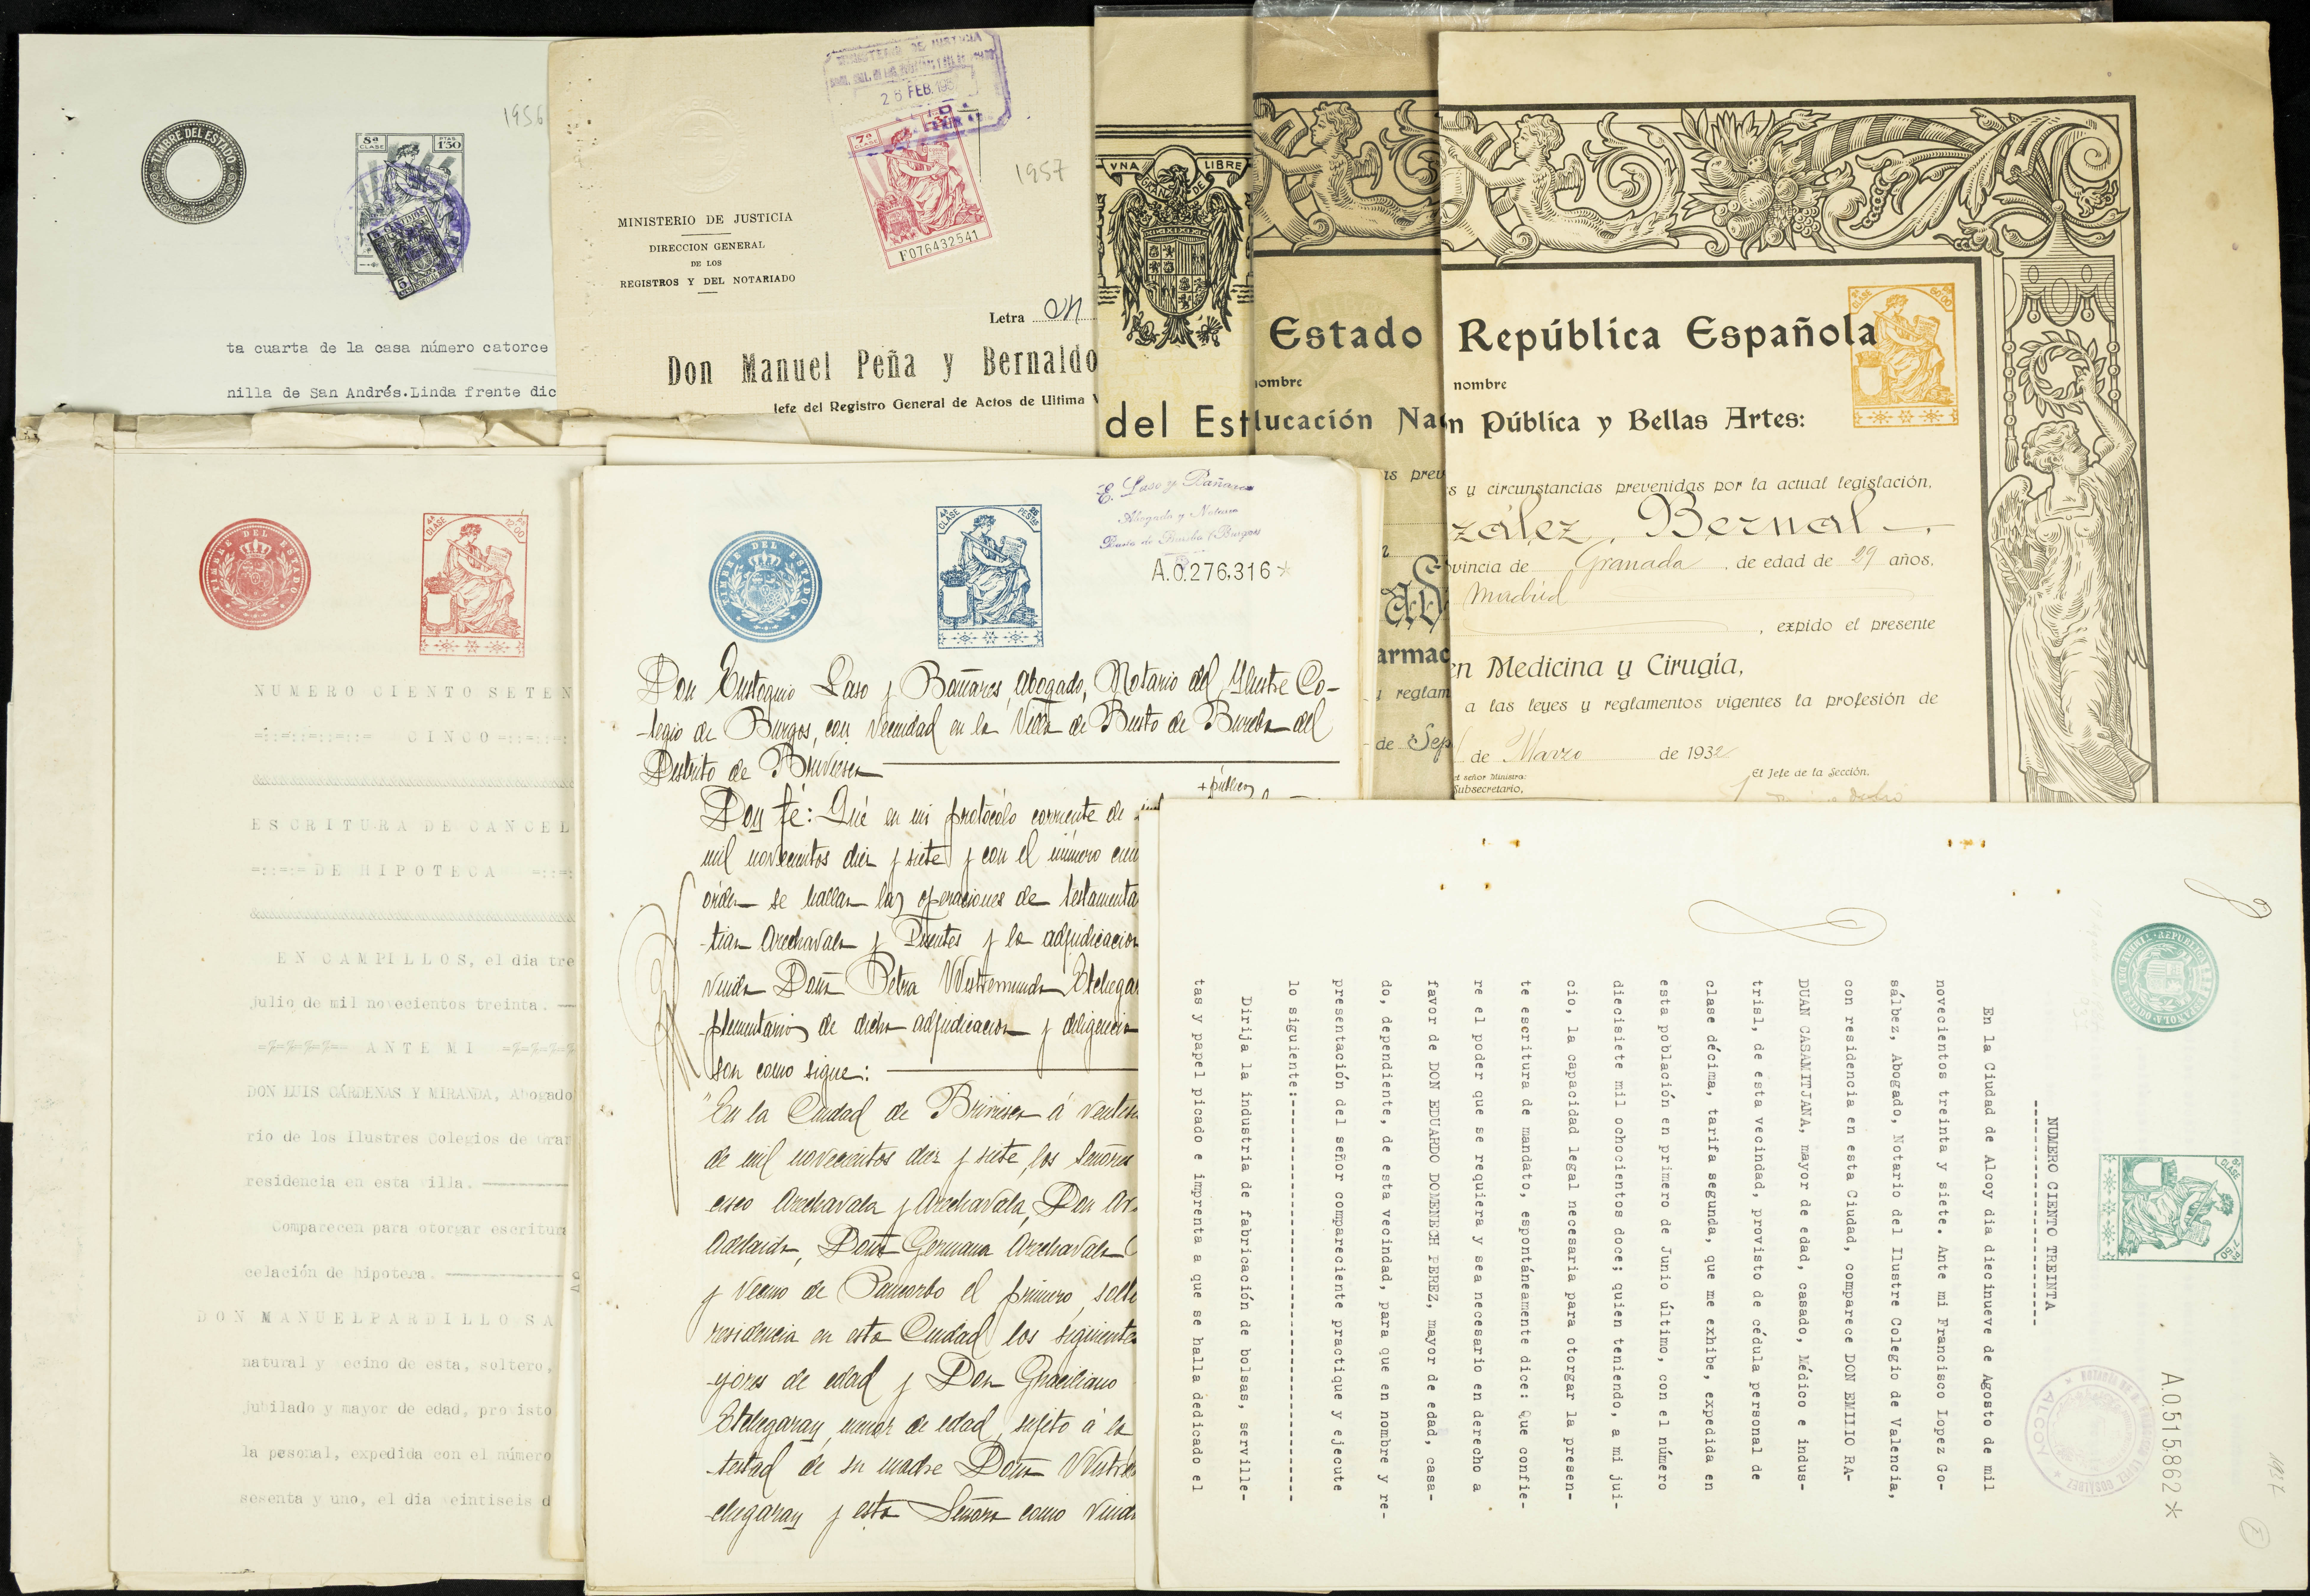 1956
TIMBRE DEL ESTADO
8ª CLASE
PTAS 1'50
5
ta cuarta de la casa número catorce
nilla de San Andrés.Linda frente dic
MINISTERIO DE JUSTICIA
26 FEB. 195
7ª CLASE
F076432541
1957
MINISTERIO DE JUSTICIA
DIRECCION GENERAL
DE LOS
REGISTROS Y DEL NOTARIADO
Letra
Don Manuel Peña y Bernaldo
Jefe del Registro General de Actos de Ultima V
VNA GRANDE LIBRE
del Est
Estado
nombre
lucación Na
as prev
armac
y reglam
de Sep
República Española
nombre
n Pública y Bellas Artes:
s y circunstancias prevenidas por la actual legislación,
zález, Bernal
vincia de Granada, de edad de 29 años,
Madrid
, expido el presente
en Medicina y Cirugía,
a las leyes y reglamentos vigentes la profesión de
de Marzo de 1932
el señor Ministro:
Subsecretario,
El Jefe de la Sección,
TIMBRE DEL ESTADO
4ª CLASE
NUMERO CIENTO SETEN
=::=::=::=::= CINCO =::=::=:
ESCRITURA DE CANCEL
=::=:= DE HIPOTECA =::=:
EN CAMPILLOS, el día tre
julio de mil novecientos treinta. —
ANTE MI
DON LUIS CÁRDENAS Y MIRANDA, Abogado
rio de los Ilustres Colegios de Gran
residencia en esta villa.
Comparecen para otorgar escritura
celación de hipoteca.
DON MANUEL PARDILLO SA
natural y ecino de esta, soltero,
jubilado y mayor de edad, provisto
la pesonal, expedida con el número
sesenta y uno, el día eintiseis d
TIMBRE DEL ESTADO
4ª CLASE
25 PESETAS
E. Laso y Bañares
Abogado y Notario
Busto de Bureba (Burgos)
A.0.276,316*
Don Eustoquio Laso y Bañares, Abogado, Notario del Ilustre Co-
legio de Burgos, con vecindad en la Villa de Busto de Bureba del
Distrito de Briviesca
+ público
Doy fé: Qué en mi protócolo corriente de
mil novecientos diez y siete y con el número
órden se hallan las operaciones de testamenta
tian Arechavala y Puentes y la adjudicacion
viuda Doña Petra Wistremunda Etchegar
plementario de dicha adjudicacion y diligencia
son como sigue:
"En la Ciudad de Briviesca á
de mil novecientos diez y siete, los Señores
cisco Arechavala y Arechavala, Don
Adelaida, Doña Germana Arechavala
y vecino de Pancorbo el primero, solte
residencia en esta Ciudad los siguientes
yores de edad y Don Graciliano
Etchegaray, menor de edad, sujeto á la
testad de su madre Doña Wistre
chegaray y esta Señora como viuda
REPUBLICA ESPAÑOLA
8ª CLASE
1937
A.0.515.862*
ALCOY
NUMERO CIENTO TREINTA
En la Ciudad de Alcoy dia diecinueve de Agosto de mil
novecientos treinta y siete. Ante mi Francisco Lopez Go-
sálbez, Abogado, Notario del Ilustre Colegio de Valencia,
con residencia en esta Ciudad, comparece DON EMILIO RA-
DUAN CASAMITJANA, mayor de edad, casado, Médico e indus-
trisl, de esta vecindad, provisto de cédula personal de
clase décima, tarifa segunda, que me exhibe, expedida en
esta población en primero de Junio último, con el número
diecisiete mil ochocientos doce; quien teniendo, a mi jui-
cio, la capacidad legal necesaria para otorgar la presen-
te escritura de mandato, espontáneamente dice: Que confie-
re el poder que se requiera y sea necesario en derecho a
favor de DON EDUARDO DOMENECH PEREZ, mayor de edad, casa-
do, dependiente, de esta vecindad, para que en nombre y re-
presentación del señor compareciente practique y ejecute
lo siguiente:-
Dirija la industria de fabricación de bolsas, serville-
tas y papel picado e imprenta a que se halla dedicado el